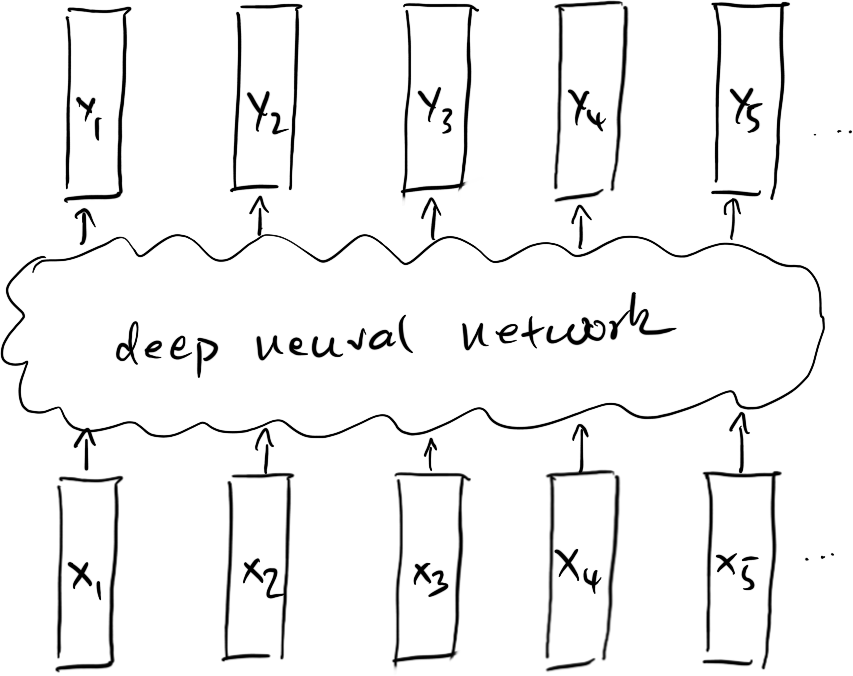 Y1 Y2 Y3 Y4 Y5 ...
deep neural network
X1 X2 X3 X4 X5 ...